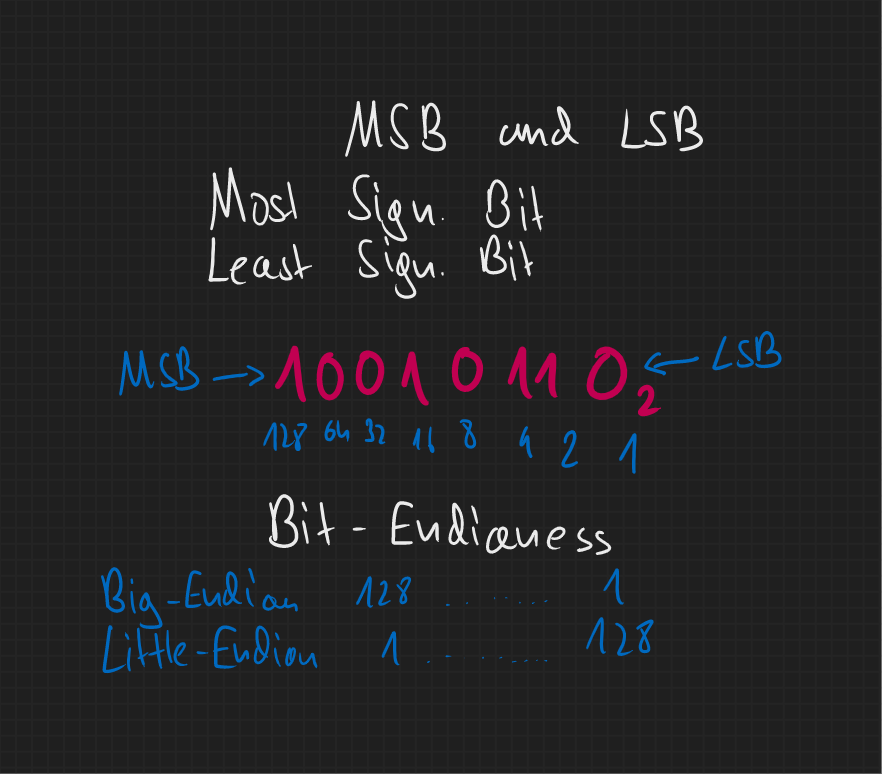 MSB und LSB
Most Sign. Bit
Least Sign. Bit
MSB → 10010110₂ ← LSB
128 64 32 16 8 4 2 1
Bit - Endianess
Big-Endian 128 ......... 1
Little-Endian 1 ......... 128